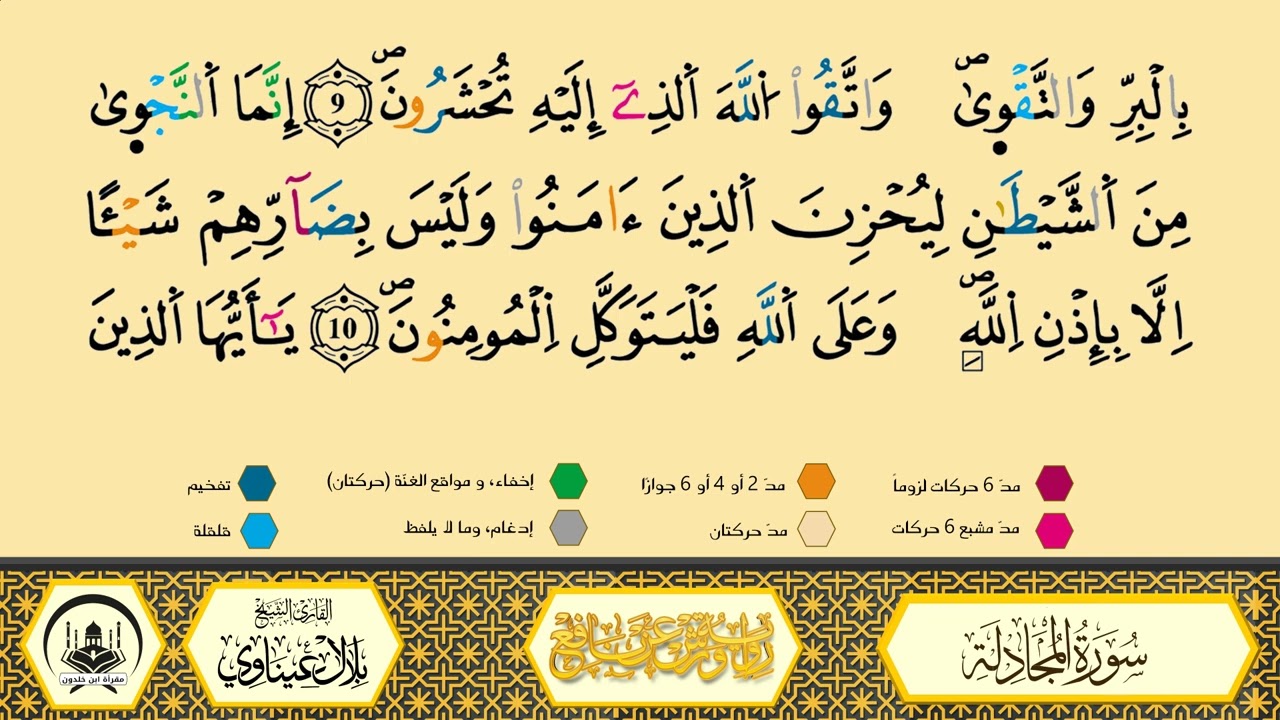 بِالْبِرِّ وَالتَّقْوٜىٰۖ وَاتَّقُواْ اُ۬للَّهَ اَ۬لذِےٓ إِلَيْهِ تُحْشَرُونَۖ 9 إِنَّمَا اَ۬لنَّجْوٜىٰ
مِنَ اَ۬لشَّيْطَٰنِ لِيُحْزِنَ اَ۬لذِينَ ءَامَنُواْ وَلَيْسَ بِضَآرِّهِمْ شَيْـٔاً
اِلَّا بِإِذْنِ اِ۬للَّهِۖ وَعَلَى اَ۬للَّهِ فَلْيَتَوَكَّلِ اِ۬لْمُومِنُونَۖ 10 يَٰٓأَيُّهَا اَ۬لذِينَ
مدّ 6 حركات لزوماً مدّ 2 أو 4 أو 6 جوازًا إخفاء، و مواقع الغنّة (حركتان) تفخيم
مدّ مشبع 6 حركات مدّ حركتان إدغام، وما لا يلفظ قلقلة
سُورَةُ المُجَادِلَة
رواية ورش عن نافع
القارئ الشيخ
بلال عيناوي
مقرأة ابن خلدون